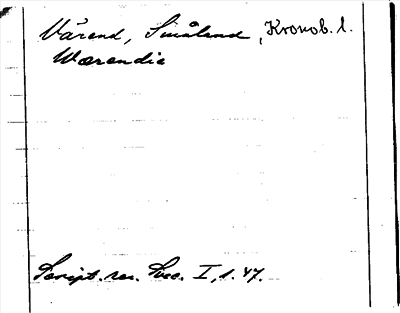 Värend, Småland, Kronob. l.
Wærendia
Script. rer. Svec. I, s. 47.